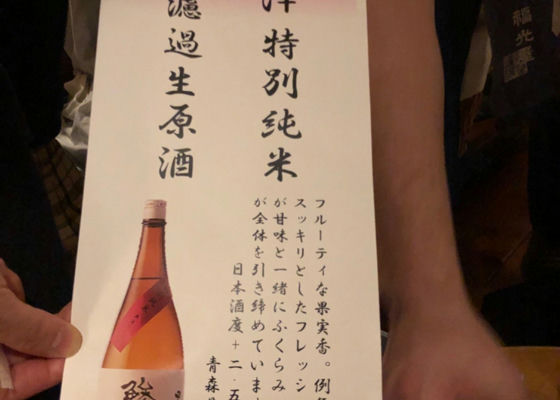 特別純米
濾過生原酒
フルーティな果実香。例
スッキリとしたフレッシ
が甘味と一緒にふくらみ
が全体を引き締めていま
日本酒度+二・五
青森